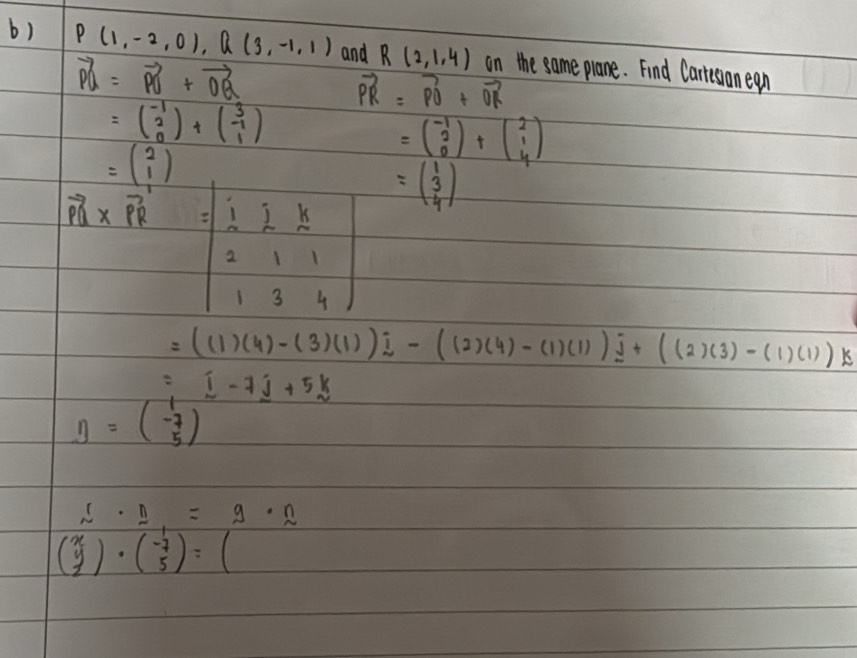 b) P (1, -2, 0), Q (3, -1, 1) and R (2, 1, 4) on the same plane. Find Cartesian eqn
PQ→ = PO→ + OQ→    PR→ = PO→ + OR→
= (-1 2 0) + (3 -1 1)    = (-1 2 0) + (2 1 4)
= (2 1 1)    = (1 3 4)
PQ→ × PR→ = | i j k
2 1 1
1 3 4 |
= ((1)(4) - (3)(1)) i - ((2)(4) - (1)(1)) j + ((2)(3) - (1)(1)) k
= i - 7j + 5k
n = (1 -7 5)
r · n = a · n
(x y z) · (1 -7 5) = (